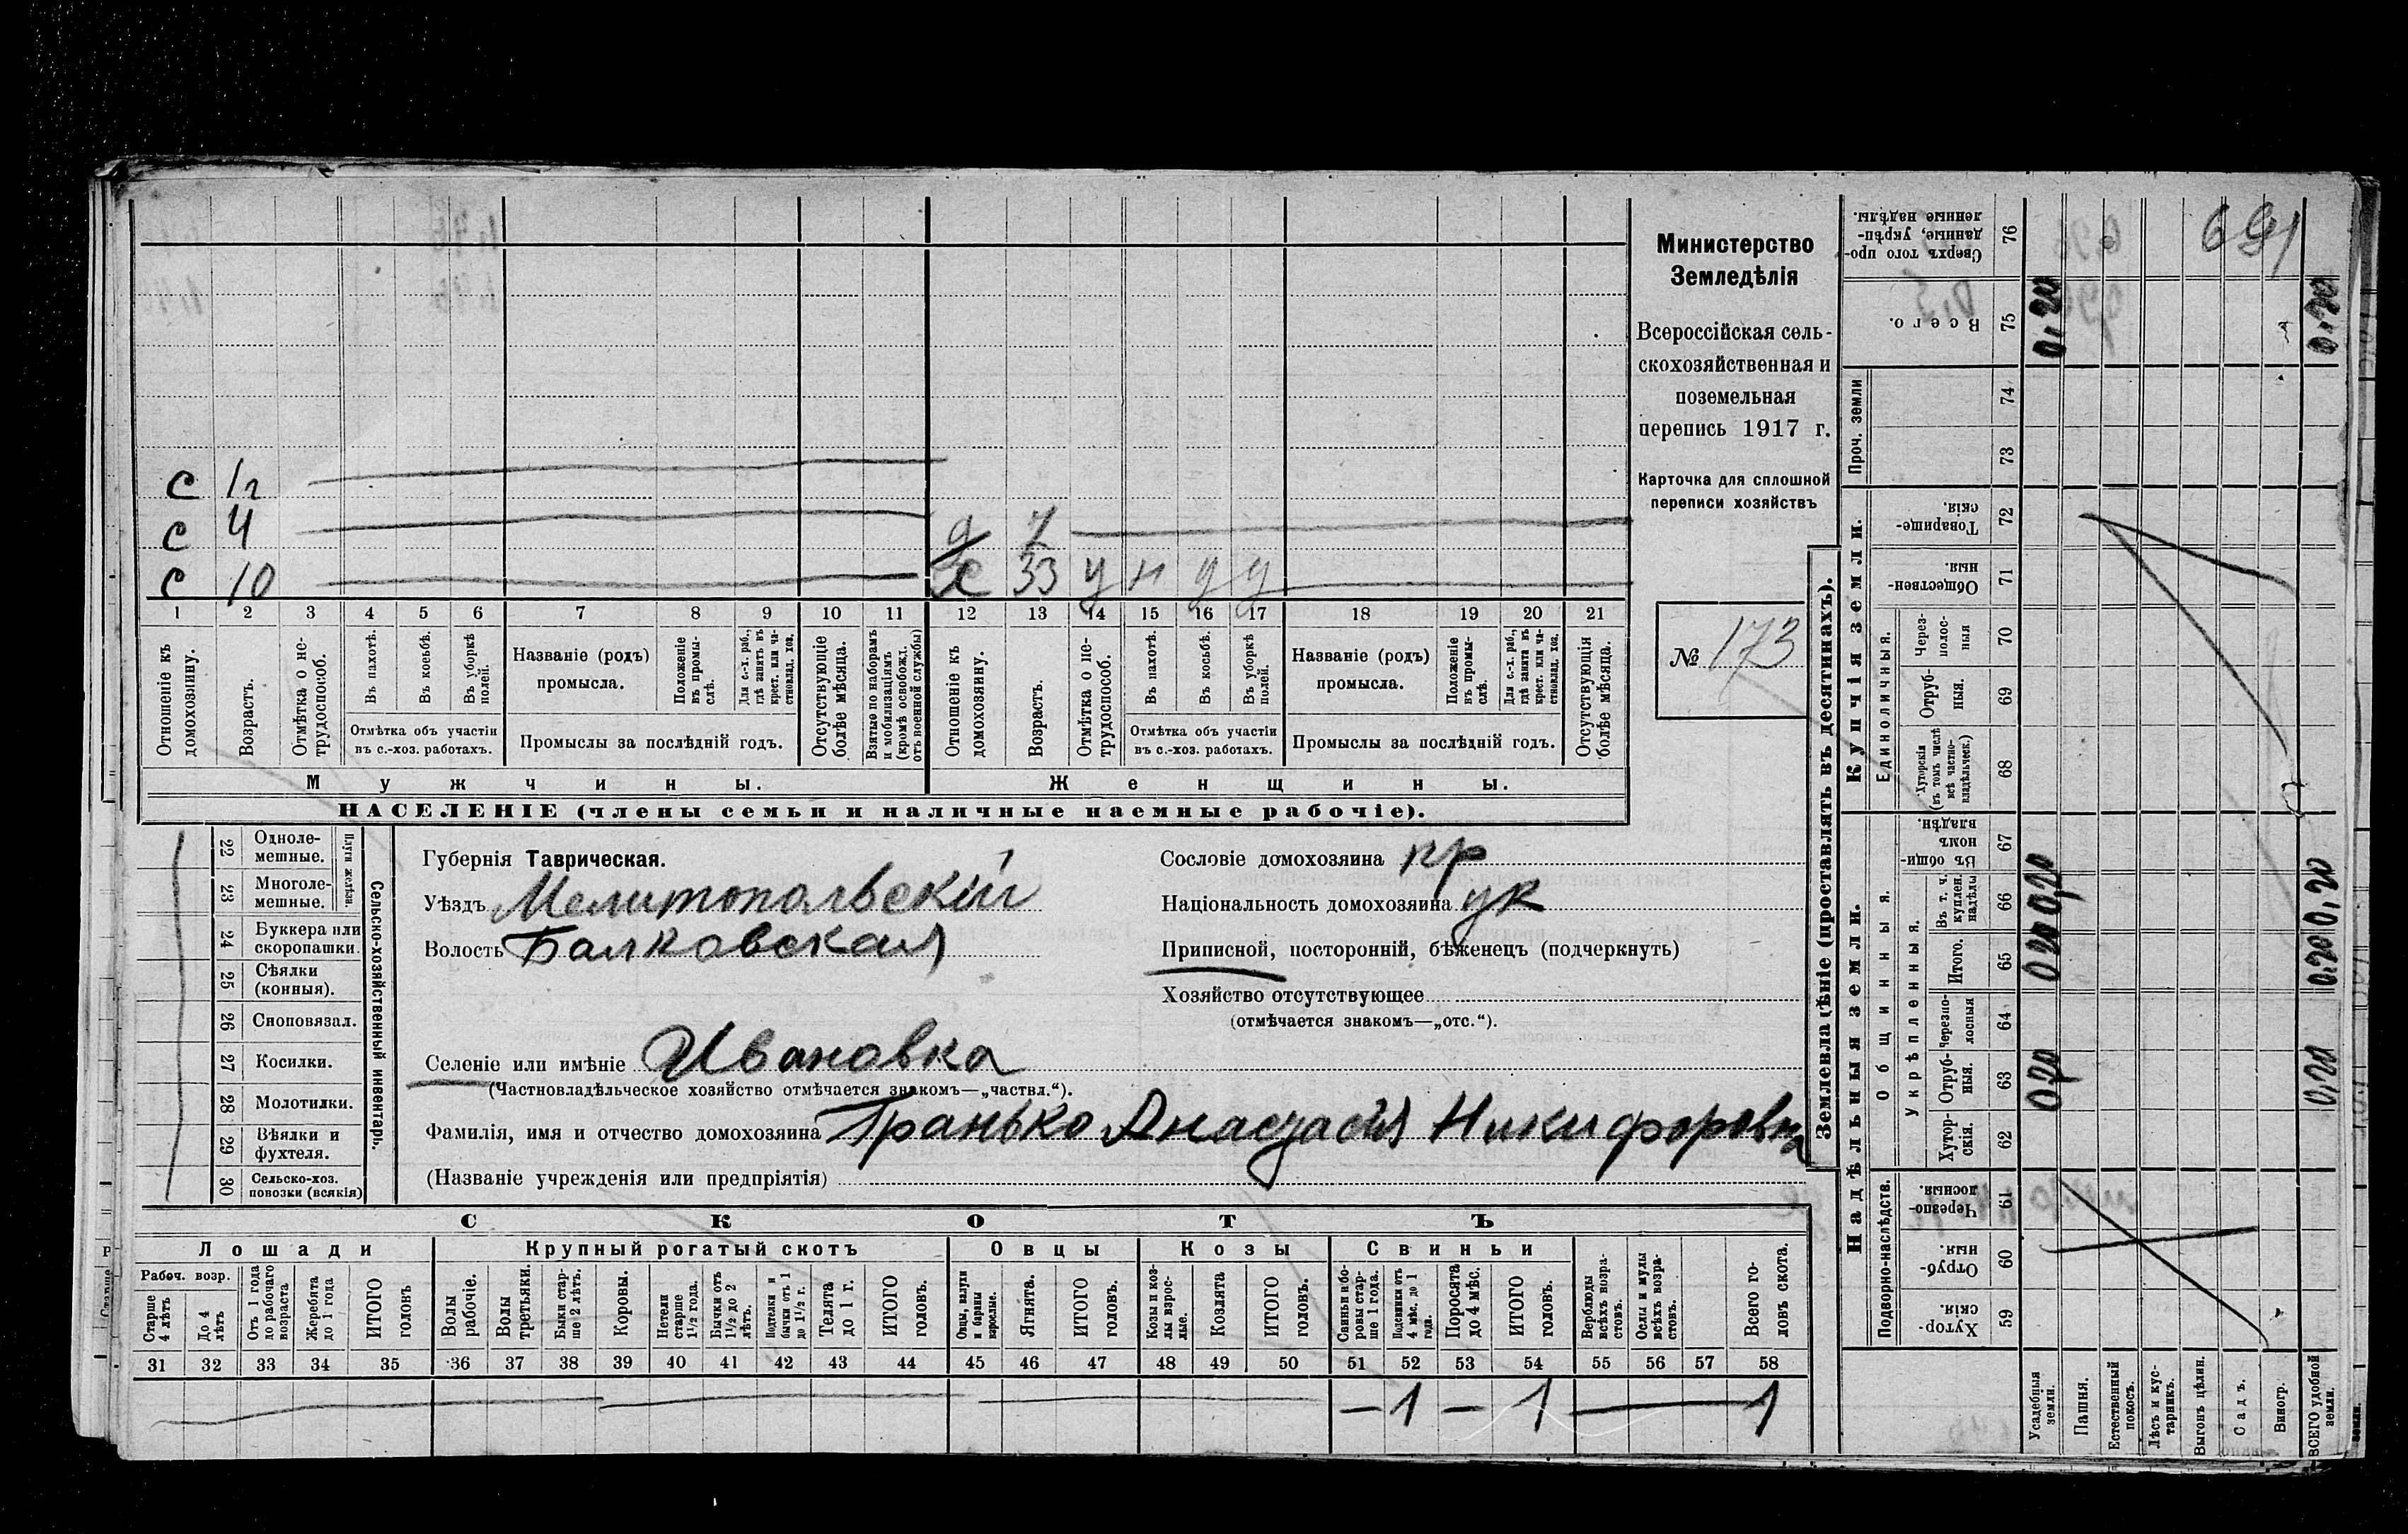 691
Министерство
Земледѣлія
Всероссійская сель-
скохозяйственная и
поземельная
перепись 1917 г.
Карточка для сплошной
переписи хозяйствъ
№ 173
с 1 г
с 4
д 7
с 10
х 33 у н д д
1 2 3 4 5 6 7 8 9 10 11 12 13 14 15 16 17 18 19 20 21
Отношеніе къ домохозяину.
Возрастъ.
Отмѣтка о не-трудоспособ.
Въ пахотѣ.
Въ косьбѣ.
Въ уборкѣ полей.
Отмѣтка объ участіи
въ с.-хоз. работахъ.
Названіе (родъ)
промысла.
Положеніе въ промы-слѣ.
Для с.-х. раб., гдѣ занятъ въ крест. или ча-стновлад. хоз.
Промыслы за послѣдній годъ.
Отсутствующіе болѣе мѣсяца.
Взятые по наборамъ и мобилизаціямъ (кромѣ освобожд. отъ военной службы)
Отношеніе къ домохозяину.
Возрастъ.
Отмѣтка о не-трудоспособ.
Въ пахотѣ.
Въ косьбѣ.
Въ уборкѣ полей.
Отмѣтка объ участіи
въ с.-хоз. работахъ.
Названіе (родъ)
промысла.
Положеніе въ промы-слѣ.
Для с.-х. раб., гдѣ занята въ крест. или ча-стновлад. хоз.
Промыслы за послѣдній годъ.
Отсутствующія болѣе мѣсяца.
Мужчины.
Женщины.
НАСЕЛЕНІЕ (члены семьи и наличные наемные рабочіе).
22 Одноле-мешные.
23 Многоле-мешные.
Плуги желѣз.
24 Буккера или скоропашки.
25 Сѣялки (конныя).
26 Сноповязал.
27 Косилки.
28 Молотилки.
29 Вѣялки и фухтеля.
30 Сельско-хоз. повозки (всякія)
Сельско-хозяйственный инвентарь.
Губернія Таврическая.
Уѣздъ Мелитопольскій
Волость Балковская
Селеніе или имѣніе Ивановка
(Частновладѣльческое хозяйство отмѣчается знакомъ—„частвл.“).
Фамилія, имя и отчество домохозяина Гранько Анастасія Никифоровна
(Названіе учрежденія или предпріятія)
Сословіе домохозяина кр
Національность домохозяина ук
Приписной, посторонній, бѣженецъ (подчеркнуть)
Хозяйство отсутствующее
(отмѣчается знакомъ—„отс.“).
СКОТЪ
Лошади
Крупный рогатый скотъ
Овцы
Козы
Свиньи
Рабоч. возр.
Старше 4 лѣтъ
До 4 лѣтъ
Отъ 1 года до рабочаго возраста
Жеребята до 1 года
ИТОГО головъ
Волы рабочіе.
Волы третьяки.
Быки стар-ше 2 лѣтъ.
Коровы.
Нетели старше 1½ года.
Бычки отъ 1½ до 2 лѣтъ.
Подтелки и бычки отъ 1 до 1½ г.
Телята до 1 г.
ИТОГО головъ.
Овцы, валухи и бараны взрослые.
Ягнята.
ИТОГО головъ.
Козы и коз-лы взрос-лые.
Козлята
ИТОГО головъ.
Свиньи и бо-ровы стар-ше 1 года.
Подсвинки отъ 4 мѣс. до 1 года.
Поросята до 4 мѣс.
ИТОГО головъ.
Верблюды всѣхъ возра-стовъ.
Ослы и мулы всѣхъ возра-стовъ.
Всего го-ловъ скота.
31 32 33 34 35 36 37 38 39 40 41 42 43 44 45 46 47 48 49 50 51 52 53 54 55 56 57 58
— 1 — 1 — 1
Землевладѣніе (проставлять въ десятинахъ).
Надѣльныя земли.
Купчія земли.
Проч. земли
Подворно-наслѣдств.
Общинныя.
Укрѣпленныя.
Единоличныя.
59 Хутор-скія.
60 Отруб-ныя.
61 Черезпо-лосныя.
62 Хутор-скія.
63 Отруб-ныя.
64 Черезпо-лосныя
65 Итого.
66 Въ т. ч. куплен. надѣлы
67 Въ общин-номъ владѣн.
68 Хуторскія (въ томъ числѣ всѣ частно-владѣльческ.)
69 Отруб-ныя.
70 Через-полос-ныя
71 Обществен-ныя.
72 Товарище-скія.
73
74
75 Всего.
76 Сверхъ того про-данные, укрѣп-ленные надѣлы.
Усадебныя земли. 0,20 0,20 0,20 0,20
Пашня.
Естественный покосъ.
Лѣсъ и кус-тарникъ.
Выгонъ цѣлин.
Садъ.
Виногр.
ВСЕГО удобной земли. 0,20 0,20 0,20 0,20